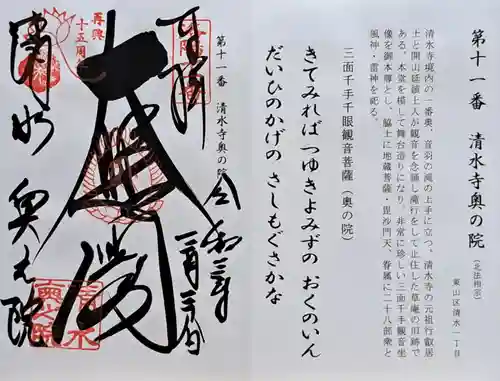 第十一番 清水寺奥の院 (北法相宗)
東山区清水一丁目
清水寺境内の一番奥、音羽の滝の上手に立つ。清水寺の元祖行叡居
士と開山延鎮上人が観音を念誦し滝行をして止住した草庵の旧跡で
ある。本堂を模して舞台造りになり、非常に珍しい三面千手観音坐
像を御本尊とし、脇士に地蔵菩薩・毘沙門天、眷属に二十八部衆と
風神・雷神を祀る。
三面千手千眼観音菩薩(奥の院)
きてみれば つゆきよみずの おくのいん
だいひのかげの さしもぐさかな
第十一番 清水寺奥の院
再興
十五周
奉拝
令和三年
清水
奥之院